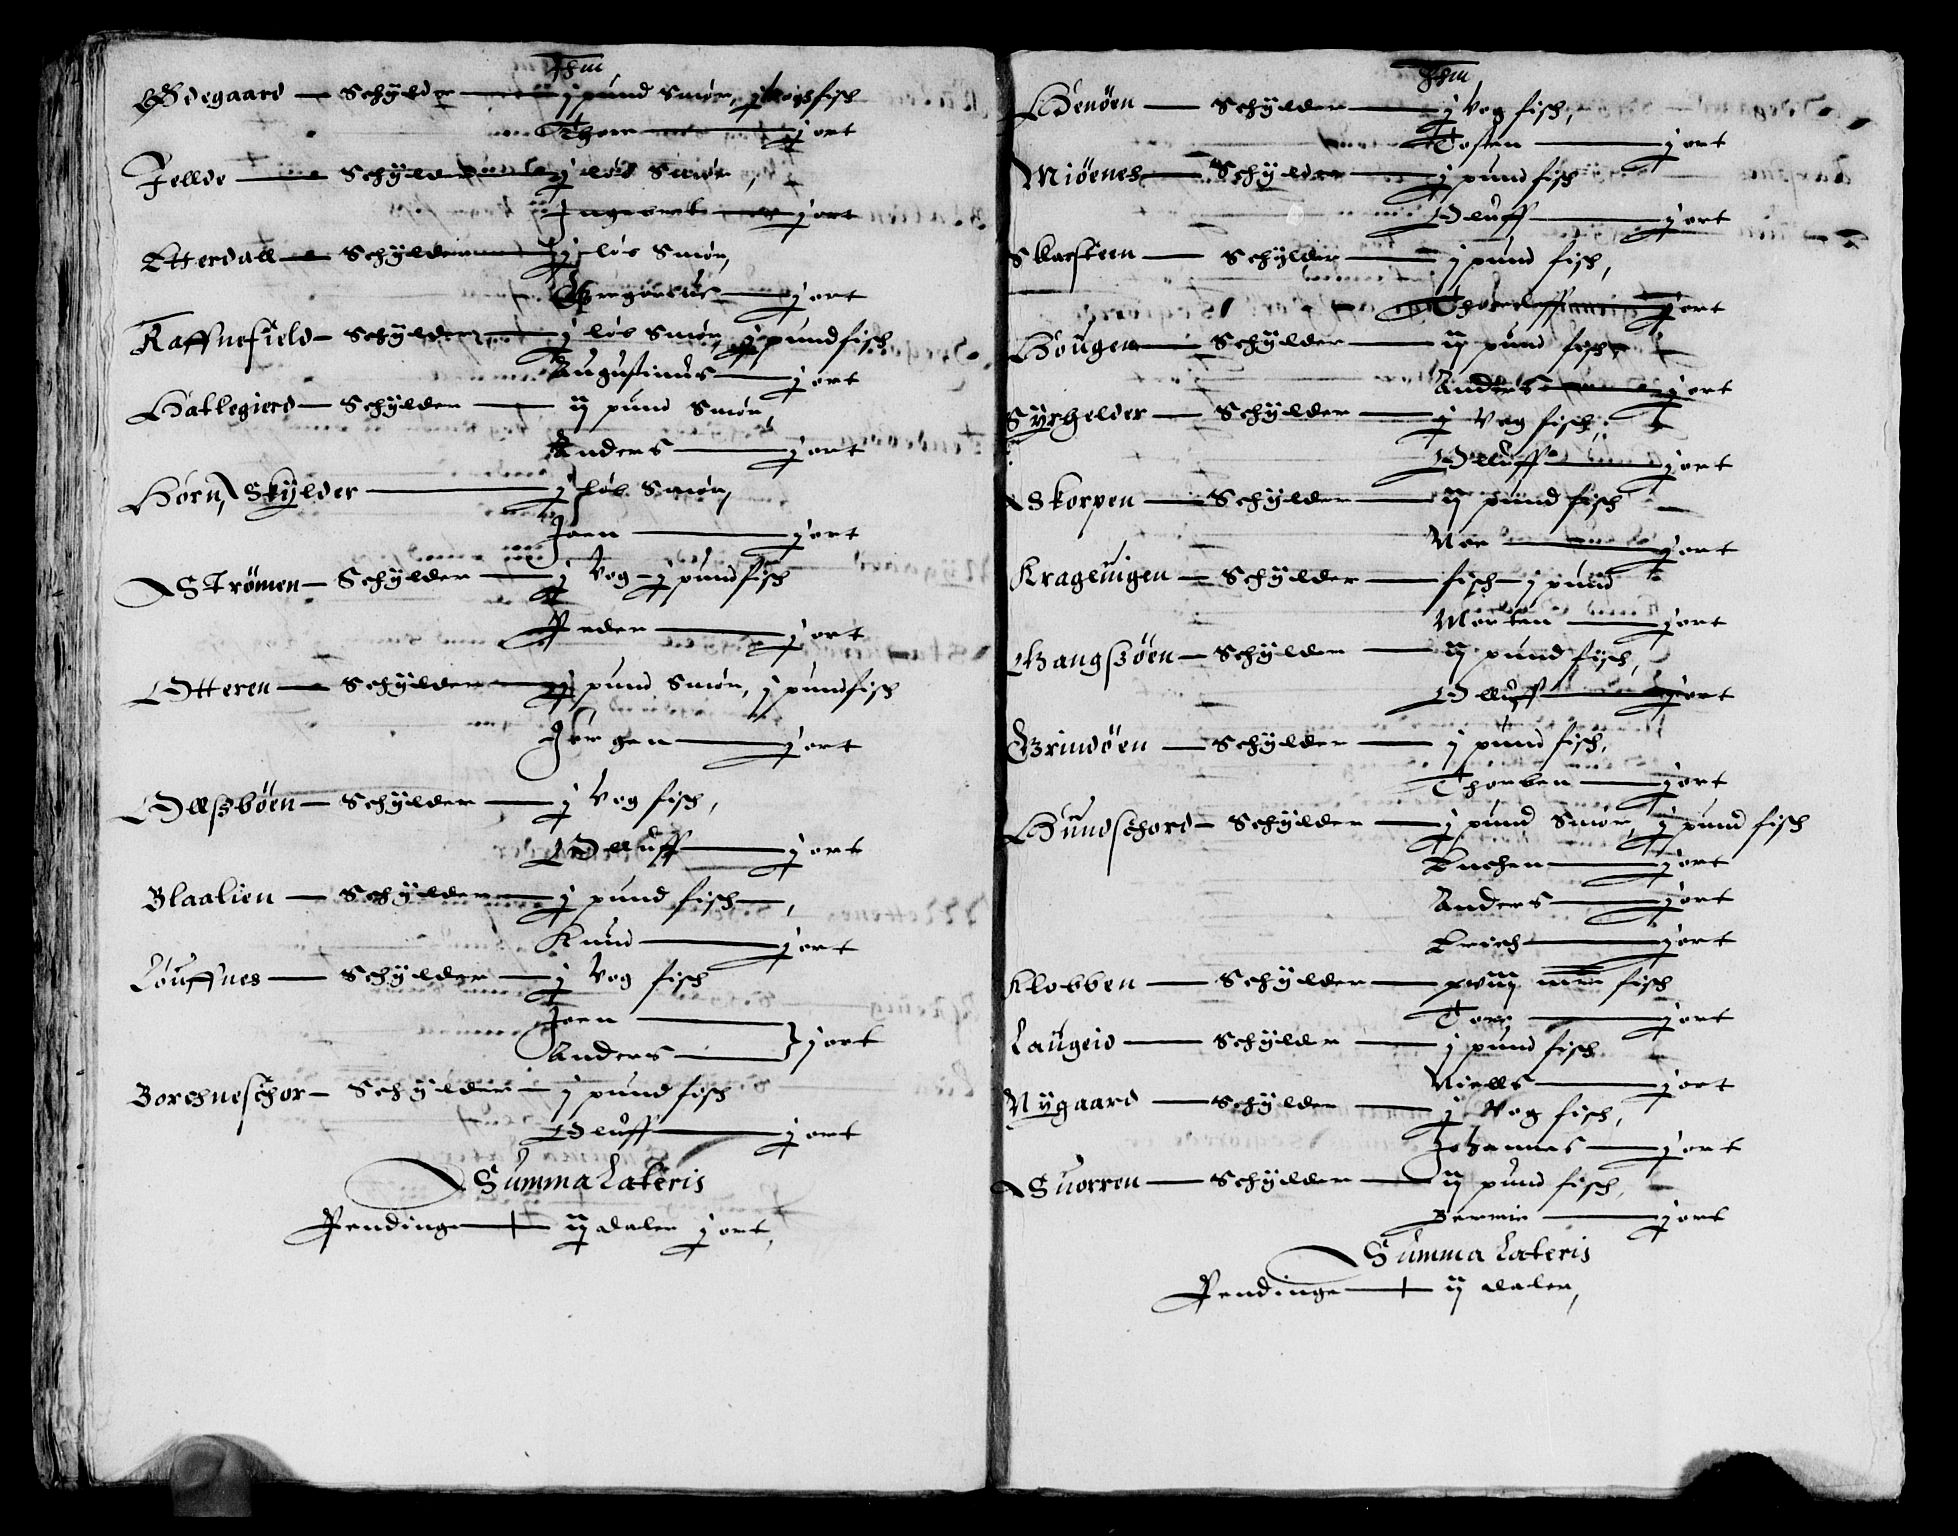 Jhm
Ødegaard — Schylder — j pund Smør, j Vog fisch
Thore — j ort
Fellde — Schylder — j løb Smør,
Ingebret — j ort
Otterdall — Schylder — j løb Smør,
Gregorius — j ort
Raffnefield — Schylder — j løb Smør, j pund fisch
Augustinus — j ort
Hatlegierd — Schylder — ij pund Smør,
Anders — j ort
Hørn, Skylder — j løb Smør,
Joen — j ort
Strömen — Schylder — j Vog — j pund fisch
Peder — j ort
Otteren — Schylder — ij pund Smør, j pund fisch
Jörgen — j ort
Ollszböen — Schylder — j Vog fisch,
Olluff — j ort
Blaalien — Schylder — j pund fisch,
Knud — j ort
Löuffnes — Schylder — j Vog fisch
Joen
Anders — } j ort
Borchneschor — Schylder — j pund fisch
Oluff — j ort
Summa Lateris
Pendinge — iij daler j ort,
Jhm
Henöen — Schylder — j Vog fisch,
Tosten — j ort
Miöenes — Schylder — j pund fisch
Oluff — j ort
Skarsteen — Schylder — j pund fisch,
Thorolff — j ort
Hougen — Schylder — ij pund fisch,
Anders — j ort
Syrhelder — Schylder — j Vog fisch,
Olluff — j ort
Skorpen — Schylder — ij pund fisch
Noe — j ort
Krageuigen — Schylder — fisch — j pund
Morten — j ort
Gangszöen — Schylder — ij pund fisch,
Olluff — j ort
Grindöen — Schylder — j pund fisch,
Thorben — j ort
Hundschord — Schylder — j pund Smør, j pund fisch
Anders — j ort
Erich — j ort
Klobben — Schylder — xviij mrk fisch
Tore — j ort
Laugeid — Schylder — j pund fisch
Niells — j ort
Nygaard — Schylder — j Vog fisch,
Johannes — j ort
Suorren — Schylder — ij pund fisch,
j ort
Summa Lateris
Pendinge — ij daler,